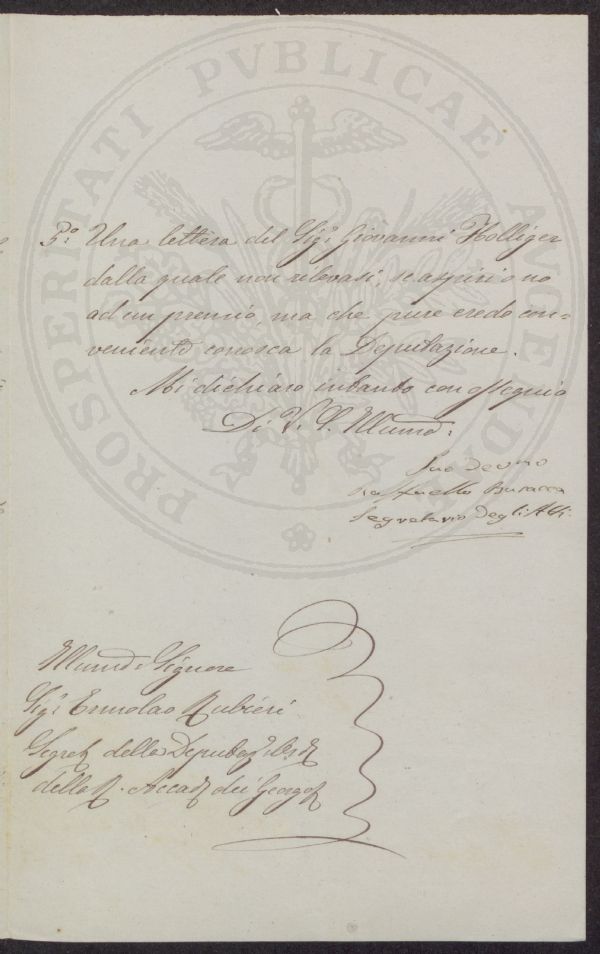 PROSPERITATI PVBLICAE AVGENDAE
5.º Una lettera del Sig.r Giovanni Holliger
dalla quale non rilevasi, se aspiri o no
ad un premio, ma che pure credo con=
veniente conosca la Deputazione.
Mi dichiaro intanto con ossequio
Di V. S. Illumã.
Suo Devmo
Raffaello Busacca
Segretario Degli Atti.
Illumõ Signore
Sig.r Ermolao Rubieri
Segret della Deputaz
della R. Accad dei Georgof